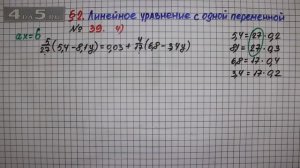 4 DA 5 .RU
§2. Линейное уравнение с одной переменной
№ 39. 4)
ax=b
5/27(5,4-8,1y)=0,03+4/17(6,8-3,4y)
5,4=27·0,2
81=27·0,3
6,8=17·0,4
3,4=17·0,2